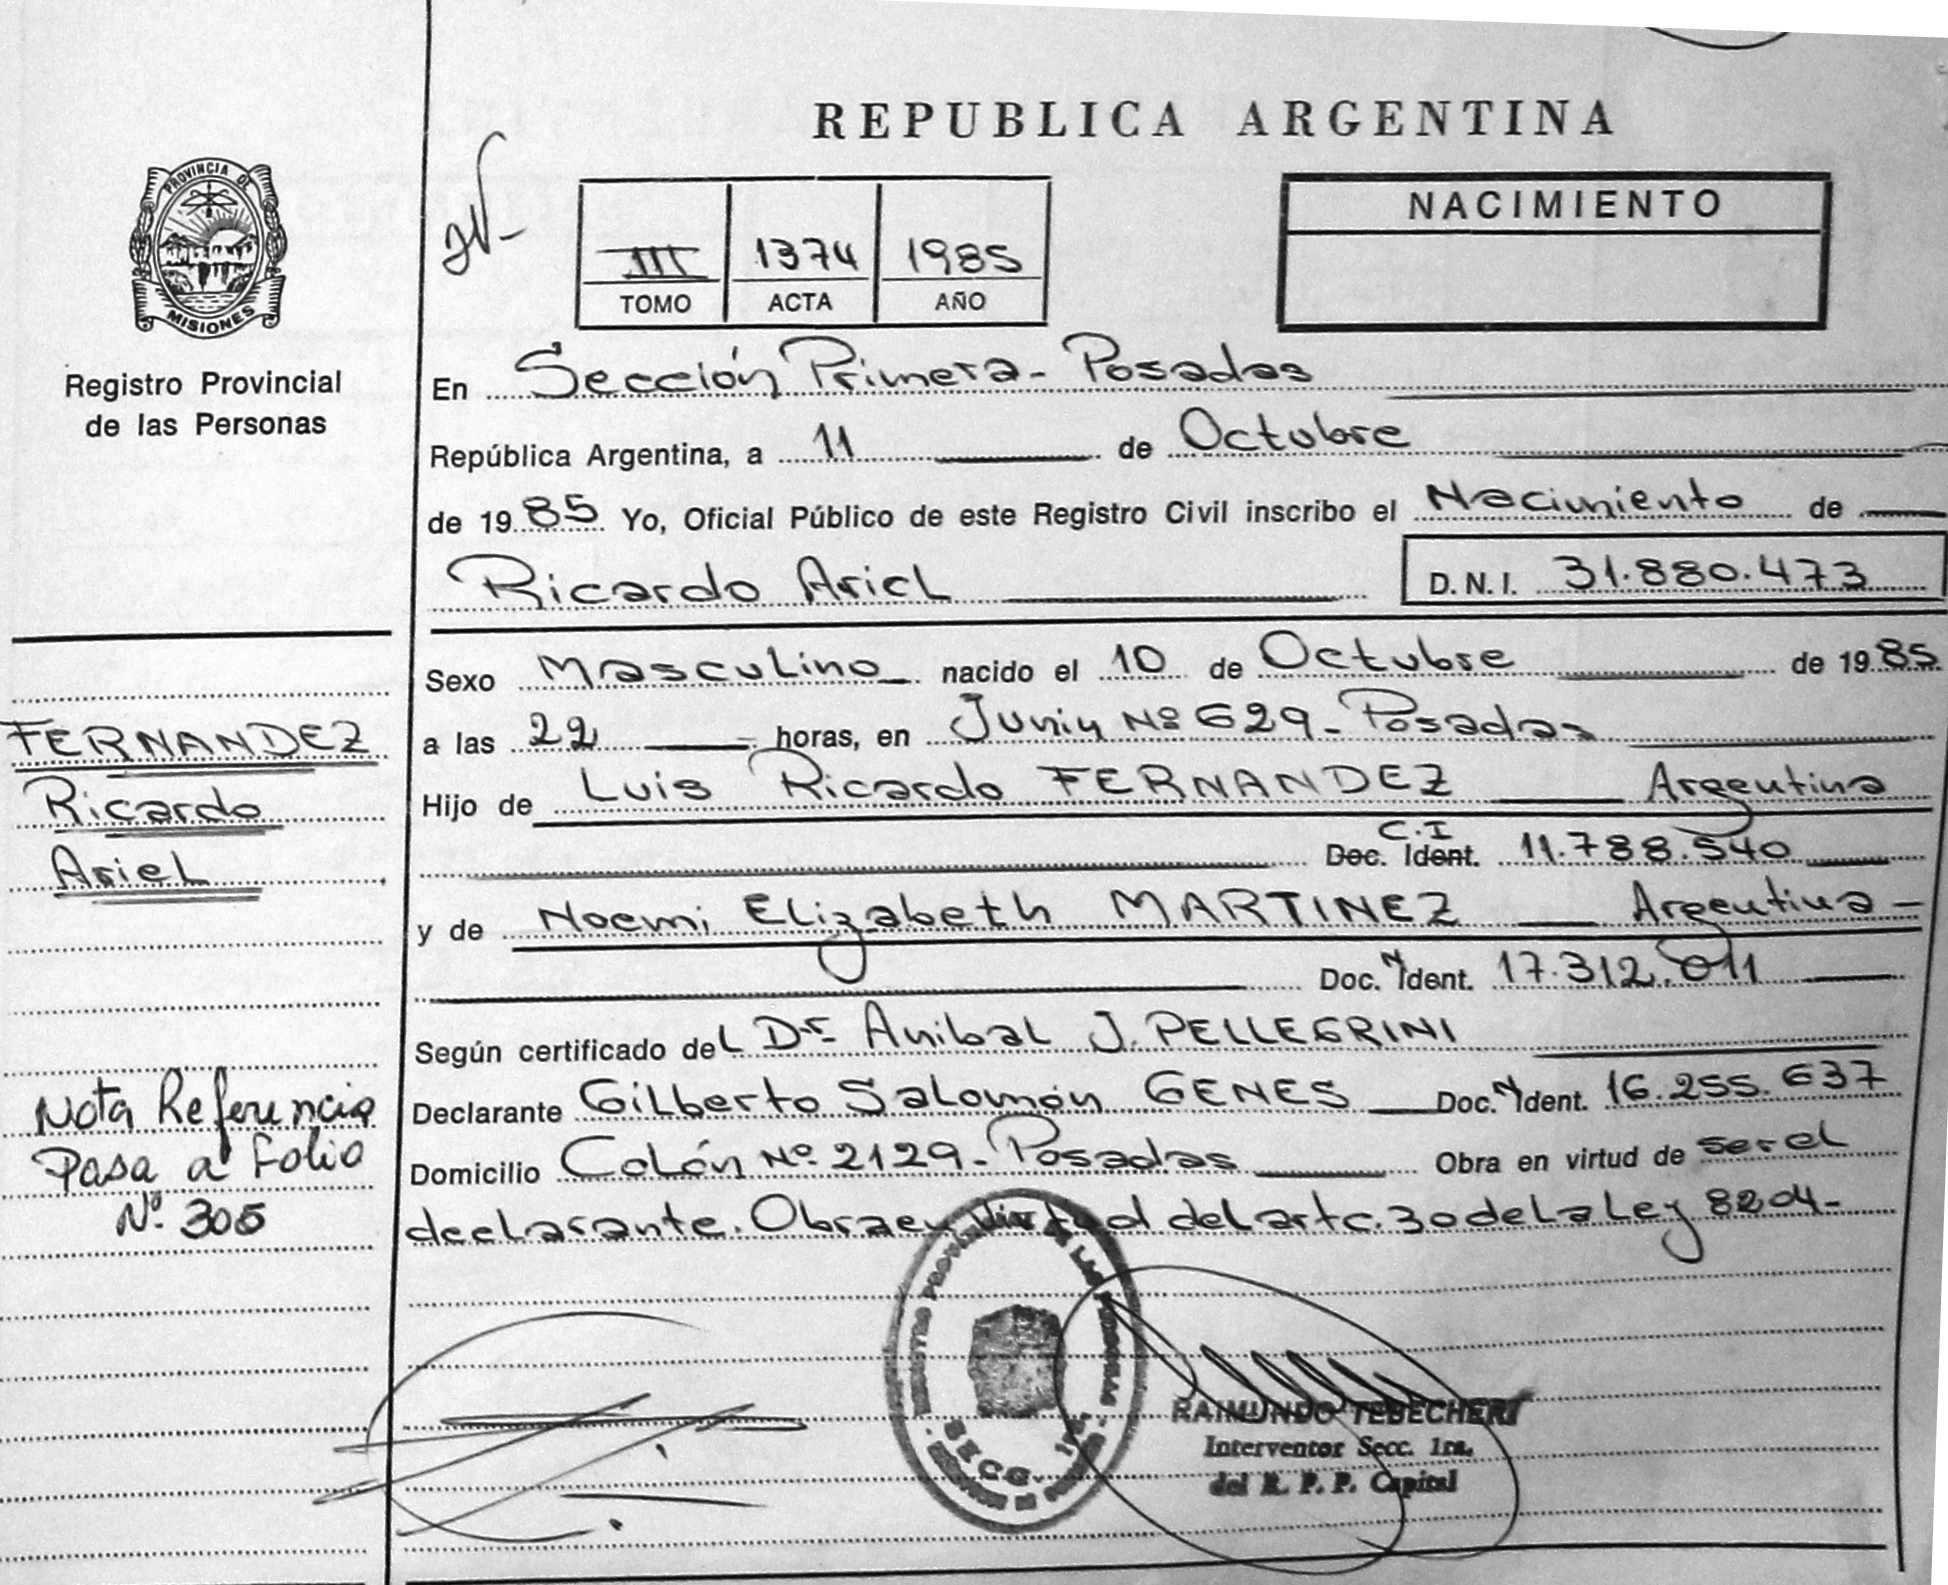 REPUBLICA ARGENTINA
PROVINCIA DE
MISIONES
Registro Provincial
de las Personas
III 1374 1985
TOMO ACTA AÑO
NACIMIENTO
En Sección Primera - Posadas
República Argentina, a 11 de Octubre
de 1985 Yo, Oficial Público de este Registro Civil inscribo el Nacimiento de
Ricardo Ariel D.N.I. 31.880.473
Sexo Masculino nacido el 10 de Octubre de 1985
a las 22 horas, en Junin Nº 629 - Posadas
Hijo de Luis Ricardo FERNANDEZ Argentina
C.I
Doc. Ident. 11.788.540
y de Noemi Elizabeth MARTINEZ Argentina -
Doc. N Ident. 17.312.011
Según certificado del Dr. Anibal J. PELLEGRINI
Declarante Gilberto Salomón GENES Doc. N Ident. 16.255.637
Domicilio Colón Nº 2129 - Posadas Obra en virtud de ser el
declarante. Obra en virtud del artc. 30 de la Ley 8204 -
FERNANDEZ
Ricardo
Ariel
Nota Referencia
Pasa a Folio
Nº 305
REGISTRO PROVINCIAL DE LAS PERSONAS
SECC. 1ra.
RAIMUNDO TEBECHERI
Interventor Secc. 1ra.
del R. P. P. Capital